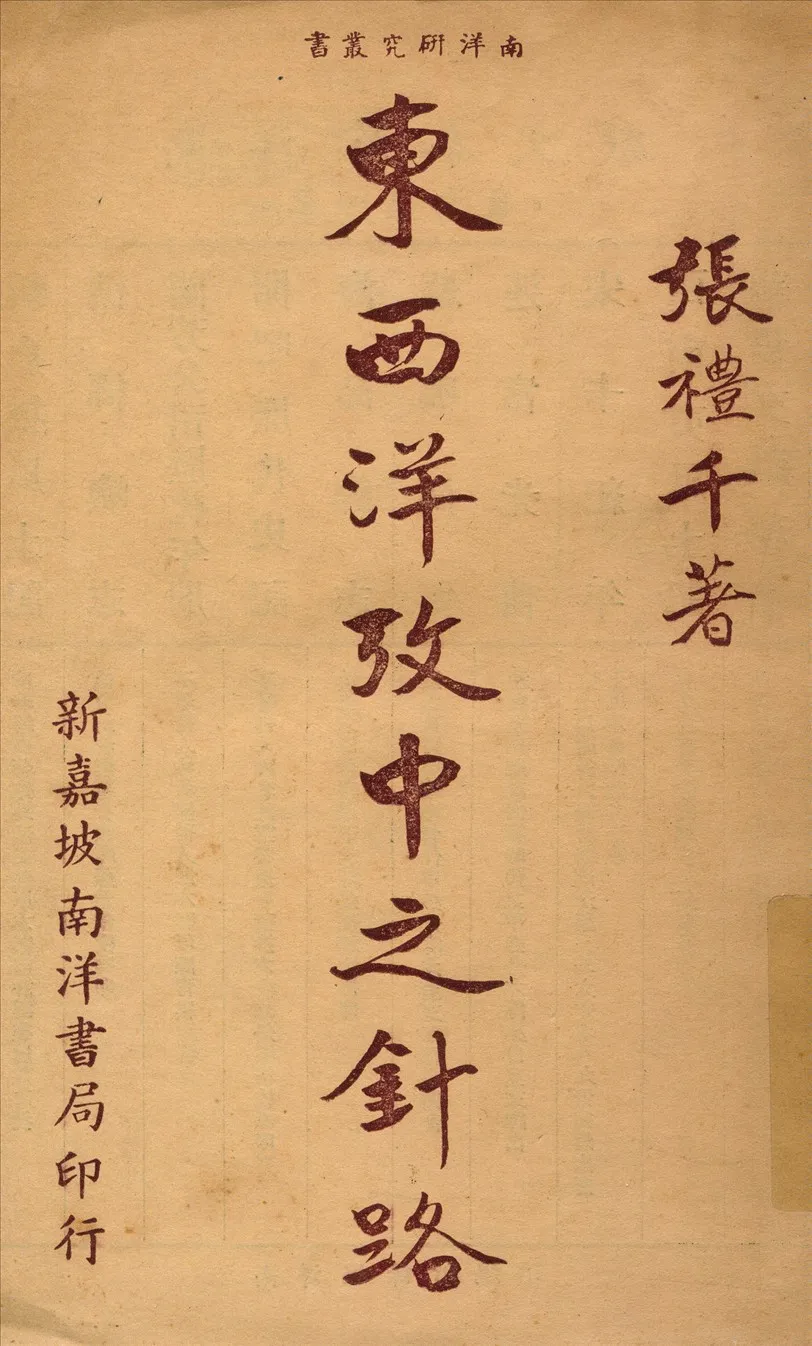 南洋研究叢書
張禮千著
東西洋攷中之針路
新嘉坡南洋書局印行